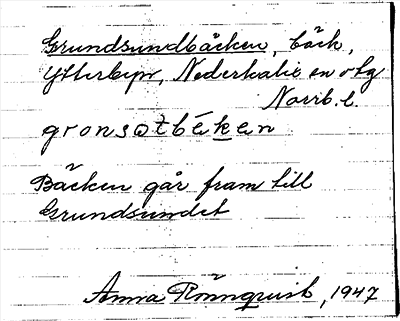 Grundsundbäcken, bäck,
Ytterbyn, Nederkalix en o fg
Norrb. l.
gronsøtbéken
Bäcken går fram till
Grundsundet
Anna Rönnquist, 1947